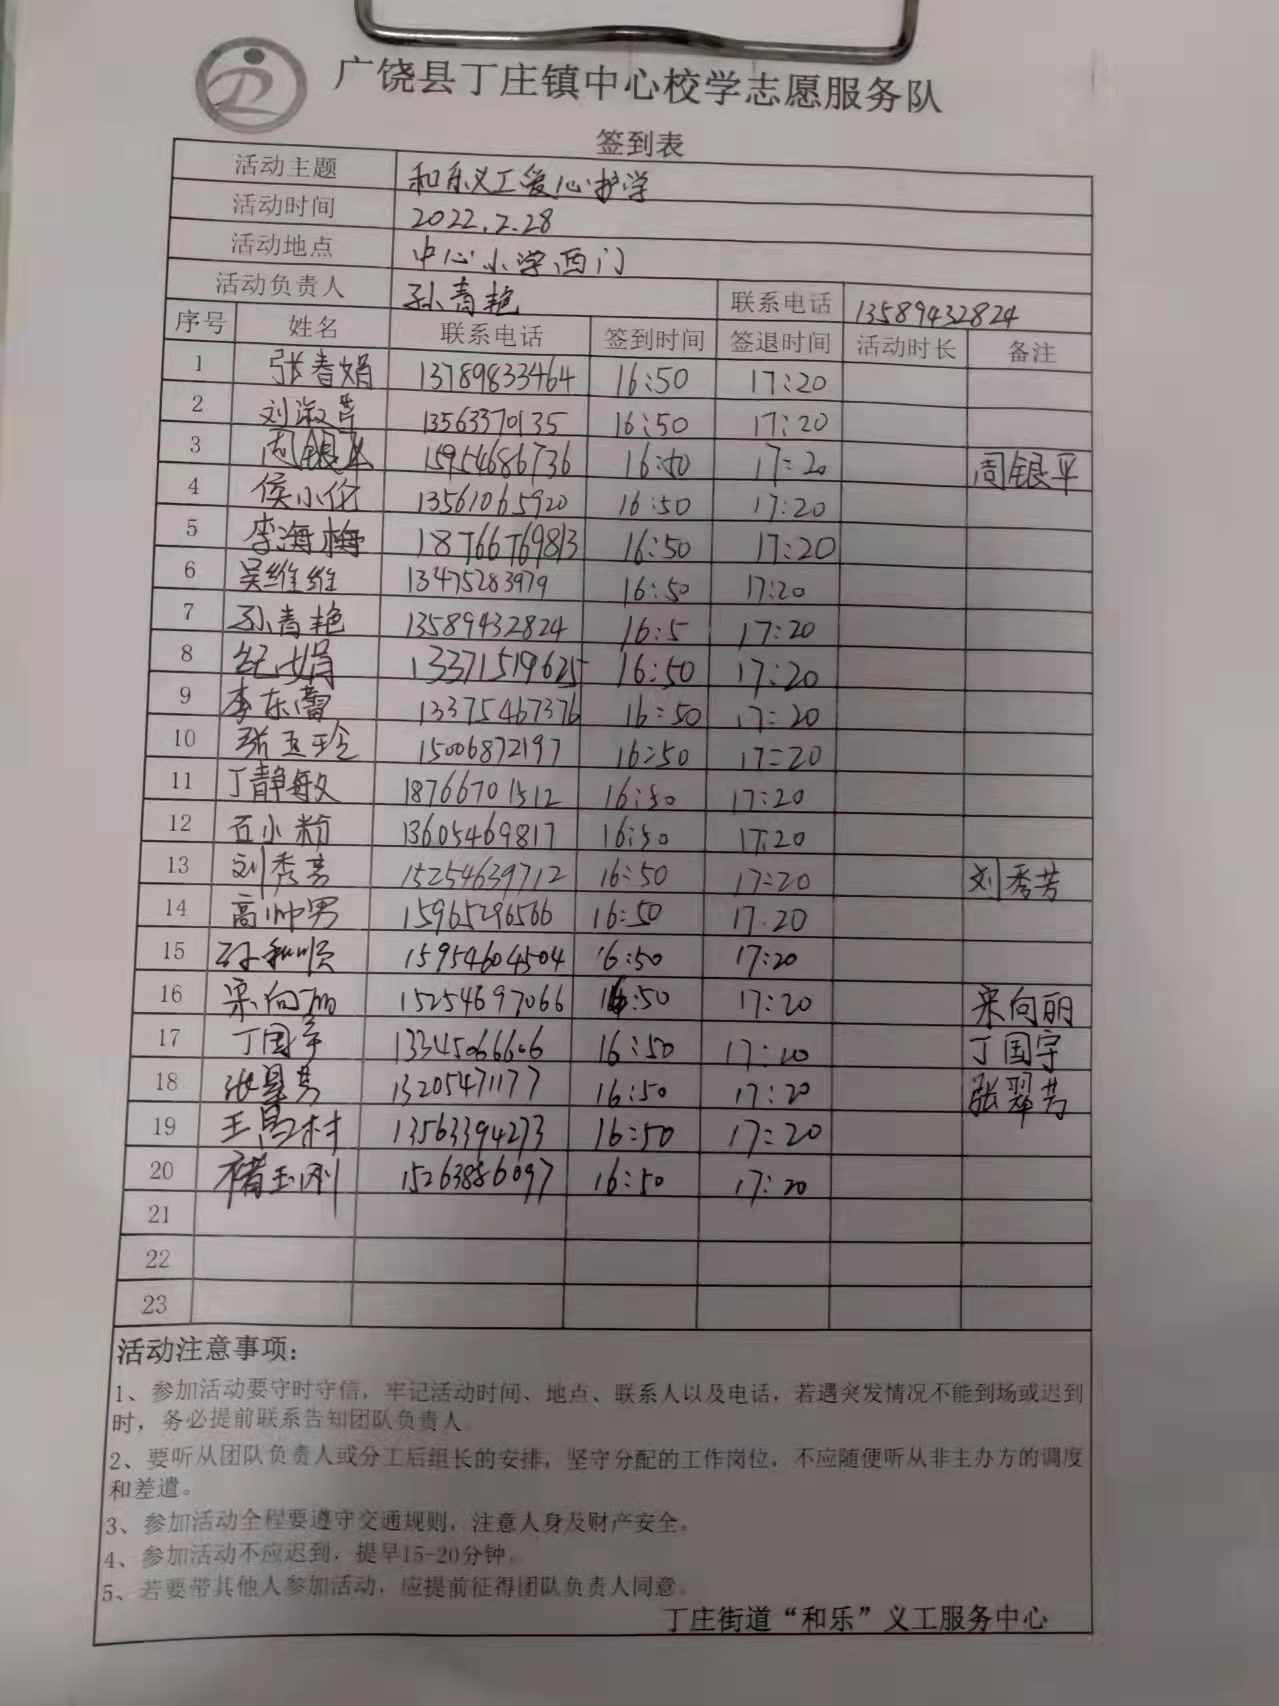 广饶县丁庄镇中心校学志愿服务队
签到表
活动主题 和乐义工爱心护学
活动时间 2022.2.28
活动地点 中心小学西门
活动负责人 孙青艳 联系电话 13589432824
序号 姓名 联系电话 签到时间 签退时间 活动时长 备注
1 张春娟 13789833464 16:50 17:20
2 刘淑芹 13563370135 16:50 17:20
3 周银平 15954686736 16:50 17:20 周银平
4 侯小伦 13561065920 16:50 17:20
5 李海梅 18766769813 16:50 17:20
6 吴维维 13475283979 16:50 17:20
7 孙青艳 13589432824 16:5 17:20
8 纪娟 13371519625 16:50 17:20
9 李东蕾 13375467376 16:50 17:20
10 张玉玲 15006872197 16:50 17:20
11 丁静敏 18766701512 16:50 17:20
12 石小粉 13605469817 16:50 17:20
13 刘秀芳 15254639712 16:50 17:20 刘秀芳
14 高帅男 15965296566 16:50 17.20
15 15954604504 16:50 17:20
16 宋向丽 15254697066 16:50 17:20 宋向丽
17 丁国宇 13345066606 16:50 17:20 丁国宇
18 张翠芳 13205471177 16:50 17:20 张翠芳
19 王昌村 13563394273 16:50 17:20
20 褚玉刚 15263886097 16:50 17:20
21
22
23
活动注意事项：
1、参加活动要守时守信，牢记活动时间、地点、联系人以及电话，若遇突发情况不能到场或迟到
时，务必提前联系告知团队负责人。
2、要听从团队负责人或分工后组长的安排，坚守分配的工作岗位，不应随便听从非主办方的调度
和差遣。
3、参加活动全程要遵守交通规则，注意人身及财产安全。
4、参加活动不应迟到，提早15-20分钟。
5、若要带其他人参加活动，应提前征得团队负责人同意。
丁庄街道“和乐”义工服务中心